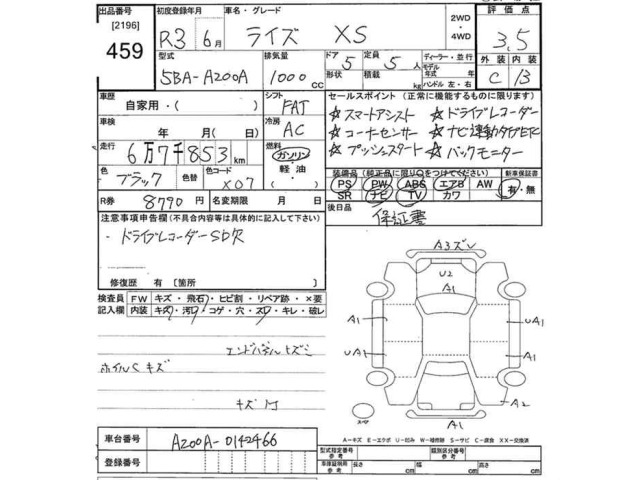 出品番号 初度登録年月 車名・グレード 2WD・4WD 評価点
[2196]
459 R3 6月 ライズ XS 3.5
型式 排気量 ドア 5 定員 5人 ディーラー・並行 外装 内装
5BA-A200A 1000cc 形状 積載 kg モデル年式 年 ハンドル 左・右 C 13
車歴 シフト セールスポイント (正常に機能するものに限ります)
自家用・( ) FAT ☆スマートアシスト ☆ドライブレコーダー
車検 冷房 ☆コーナーセンサー ☆ナビ連動タイプETC
年 月( 日) AC ☆プッシュスタート ☆バックモニター
走行 燃料
6万7千853km ガソリン・軽油・ 装備品 (純正品に限り○をつけてください) 新車保証書
色 色替 色コード PS PW ABS エアB AW 有・無
ブラック X07 SR ナビ TV カワ
R券 8790円 名変期限 月 日 後日品 保証書
注意事項申告欄(不具合内容等は具体的に記入して下さい)
・ドライブレコーダーSD欠
修復歴 有 [箇所 ]
検査員記入欄 FW キズ・飛石・ヒビ割・リペア跡・×要
内装 キズ・汚レ・コゲ・穴・スレ・キレ・破レ
ホイルC キズ
キズ
A3 ズレ
U2
A1
A1
UA1
UA1
A1
A1
A2
A1
スペア
A-キズ E-エクボ U-凹み W-補修跡 S-サビ C-腐食 XX-交換済
車台番号 A200A-0142466
登録番号
型式指定番号 参考 類別区分番号 参考
車庫証明用 参考 長さ cm 幅 cm 高さ cm